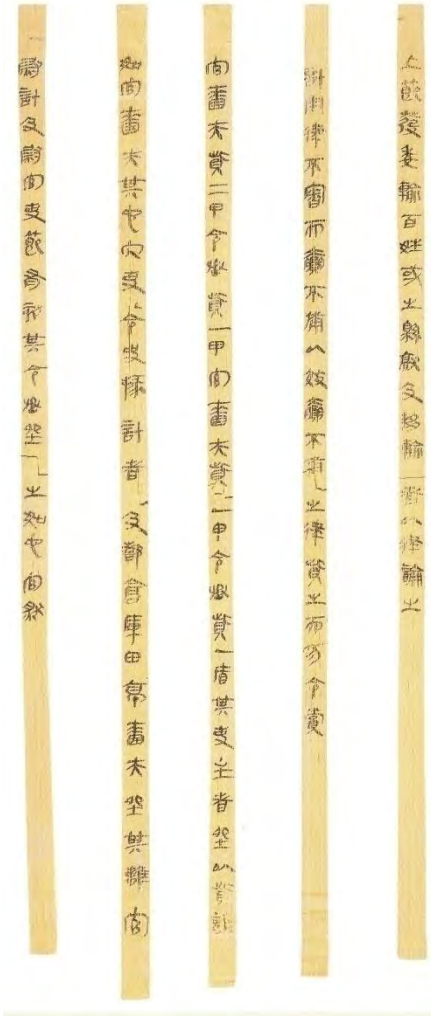 上節發委輸百姓或之縣就及移輸者以律論之
計用律不審而贏不備以效贏不備之律貲之而勿令賞
官嗇夫貲二甲令丞貲一甲官嗇夫貲一甲令丞貲一盾其吏主者坐以貲誶
如官嗇夫其它冗吏令史掾計者及都倉庫田亭嗇夫坐其離官
尉計及尉官吏節有劾其令丞坐之如它官然